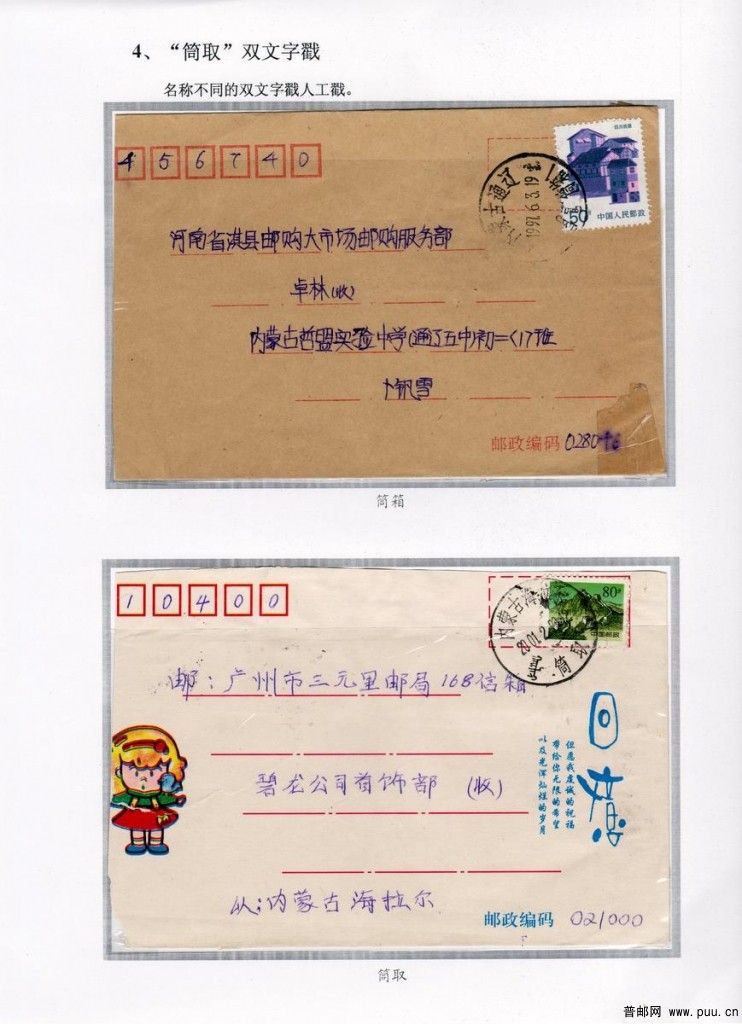 4、“筒取”双文字戳
名称不同的双文字戳人工戳。
456740
四川民居
内蒙古通辽
1997.6.3.19
50
中国人民邮政
河南省淇县邮购大市场邮购服务部
卓林(收)
内蒙古哲盟实验中学(通辽五中)初二<17班
卜钒雪
邮政编码 0280
筒箱
10400
80
中国邮政
内蒙古海
2001.2
筒取
邮:广州市三元里邮局168信箱
碧龙公司首饰部 (收)
从:内蒙古海拉尔
回忆
但愿我虔诚的祝福
带给你无限的希望
以及光辉灿烂的岁月
邮政编码 021000
筒取
普邮网 www.puu.cn